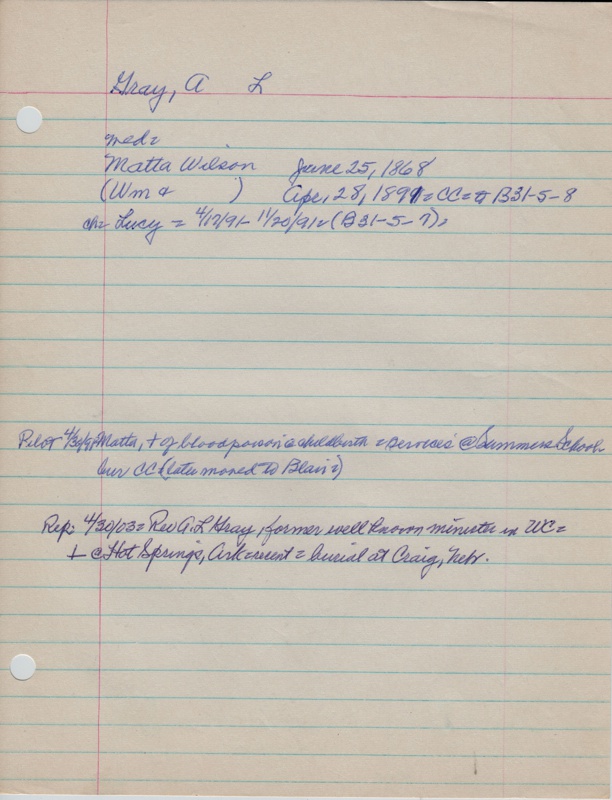 Gray, A L
med=
Matta Wilson June 25, 1868
(Wm & ) Apr, 28, 1891= CC= B31-5-8
ch= Lucy = 4/17/91- 11/20/91= (B31-5-7)=
Pilot 4/30/91 Matta, + of blood poison @ childbirth = services @ Summers School-
bur CC (later moved to Blair=)
Rep: 4/30/03= Rev A.L. Gray, former well known minister in WC=
+ @ Hot Springs, Ark=recent = burial at Craig, Nebr.